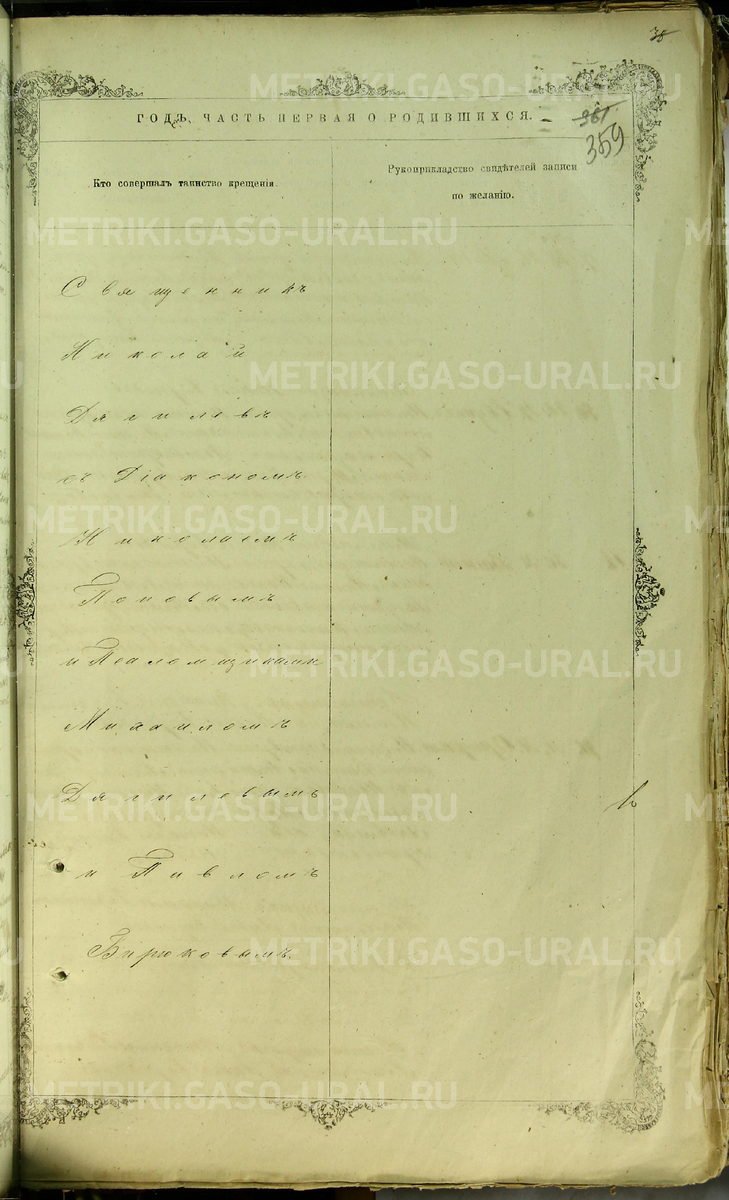 38
ГОДЪ, ЧАСТЬ ПЕРВАЯ О РОДИВШИХСЯ.
361
359
Кто совершалъ таинство крещенія.
Рукоприкладство свидѣтелей записи
по желанію.
Священникъ
Николай
Дягилевъ
съ Діакономъ
Николаемъ
Поповымъ
и Псаломщиками
Михаиломъ
Дягилевымъ
и Павломъ
Бирюковымъ.
METRIKI.GASO-URAL.RU